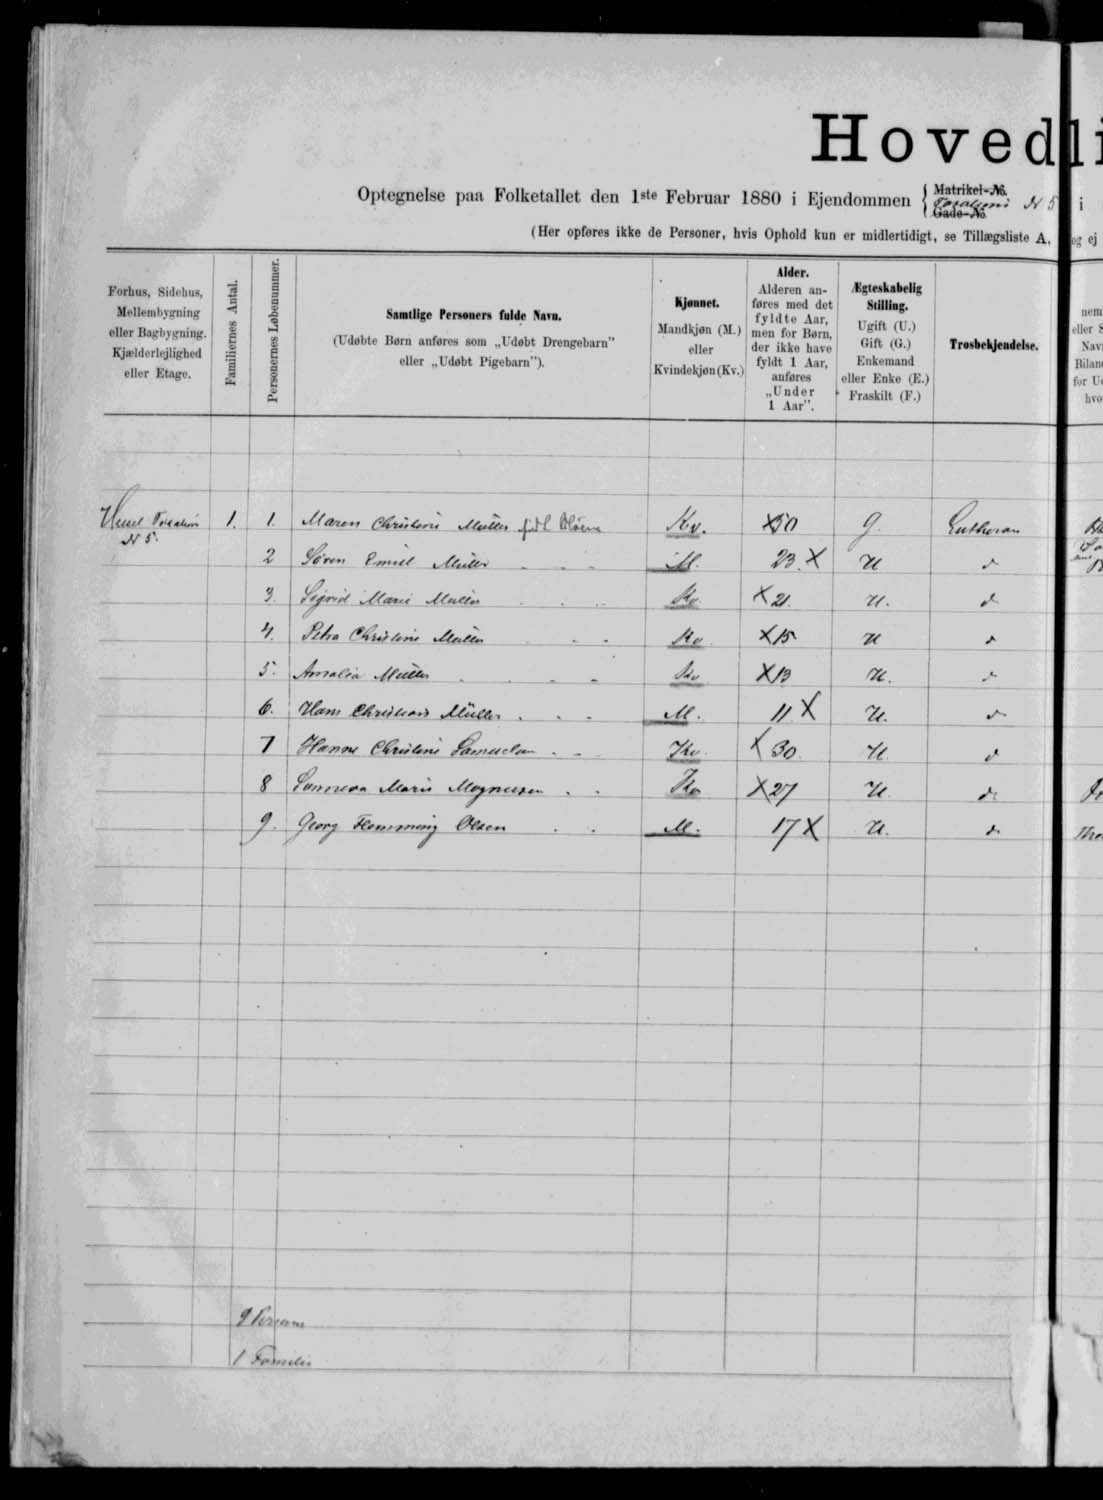 Hovedli
Optegnelse paa Folketallet den 1ste Februar 1880 i Ejendommen { Matrikel-No. Gade-No. N 5 i
(Her opføres ikke de Personer, hvis Ophold kun er midlertidigt, se Tillægsliste A, og ej
Forhus, Sidehus, Mellembygning eller Bagbygning. Kjælderlejlighed eller Etage.
Familiernes Antal.
Personernes Løbenummer.
Samtlige Personers fulde Navn.
(Udøbte Børn anføres som „Udøbt Drengebarn”
eller „Udøbt Pigebarn”).
Kjønnet.
Mandkjøn (M.)
eller
Kvindekjøn (Kv.)
Alder.
Alderen anføres med det fyldte Aar, men for Børn, der ikke have fyldt 1 Aar, anføres „Under 1 Aar”.
Ægteskabelig Stilling.
Ugift (U.)
Gift (G.)
Enkemand
eller Enke (E.)
Fraskilt (F.)
Trosbekjendelse.
N 5. 1. 1. Maren Christine Müller Kv. 50 G. Lutheran
2 Søren Emiel Müller M. 23 U d
3. Sigrid Marie Müller Kv 21. U. d
4. Petra Christine Müller Kv 15 U d
5. Amalia Müller Kv 13 U. d
6. Hans Christian Müller M. 11 U. d
7 Hanne Christine Samuelsen Kv. 30. U. d
8 Marie Magnusen Kv 27 U. d
9. Georg Flemming Olsen M. 17 U. d
9 Personer
1 Familie